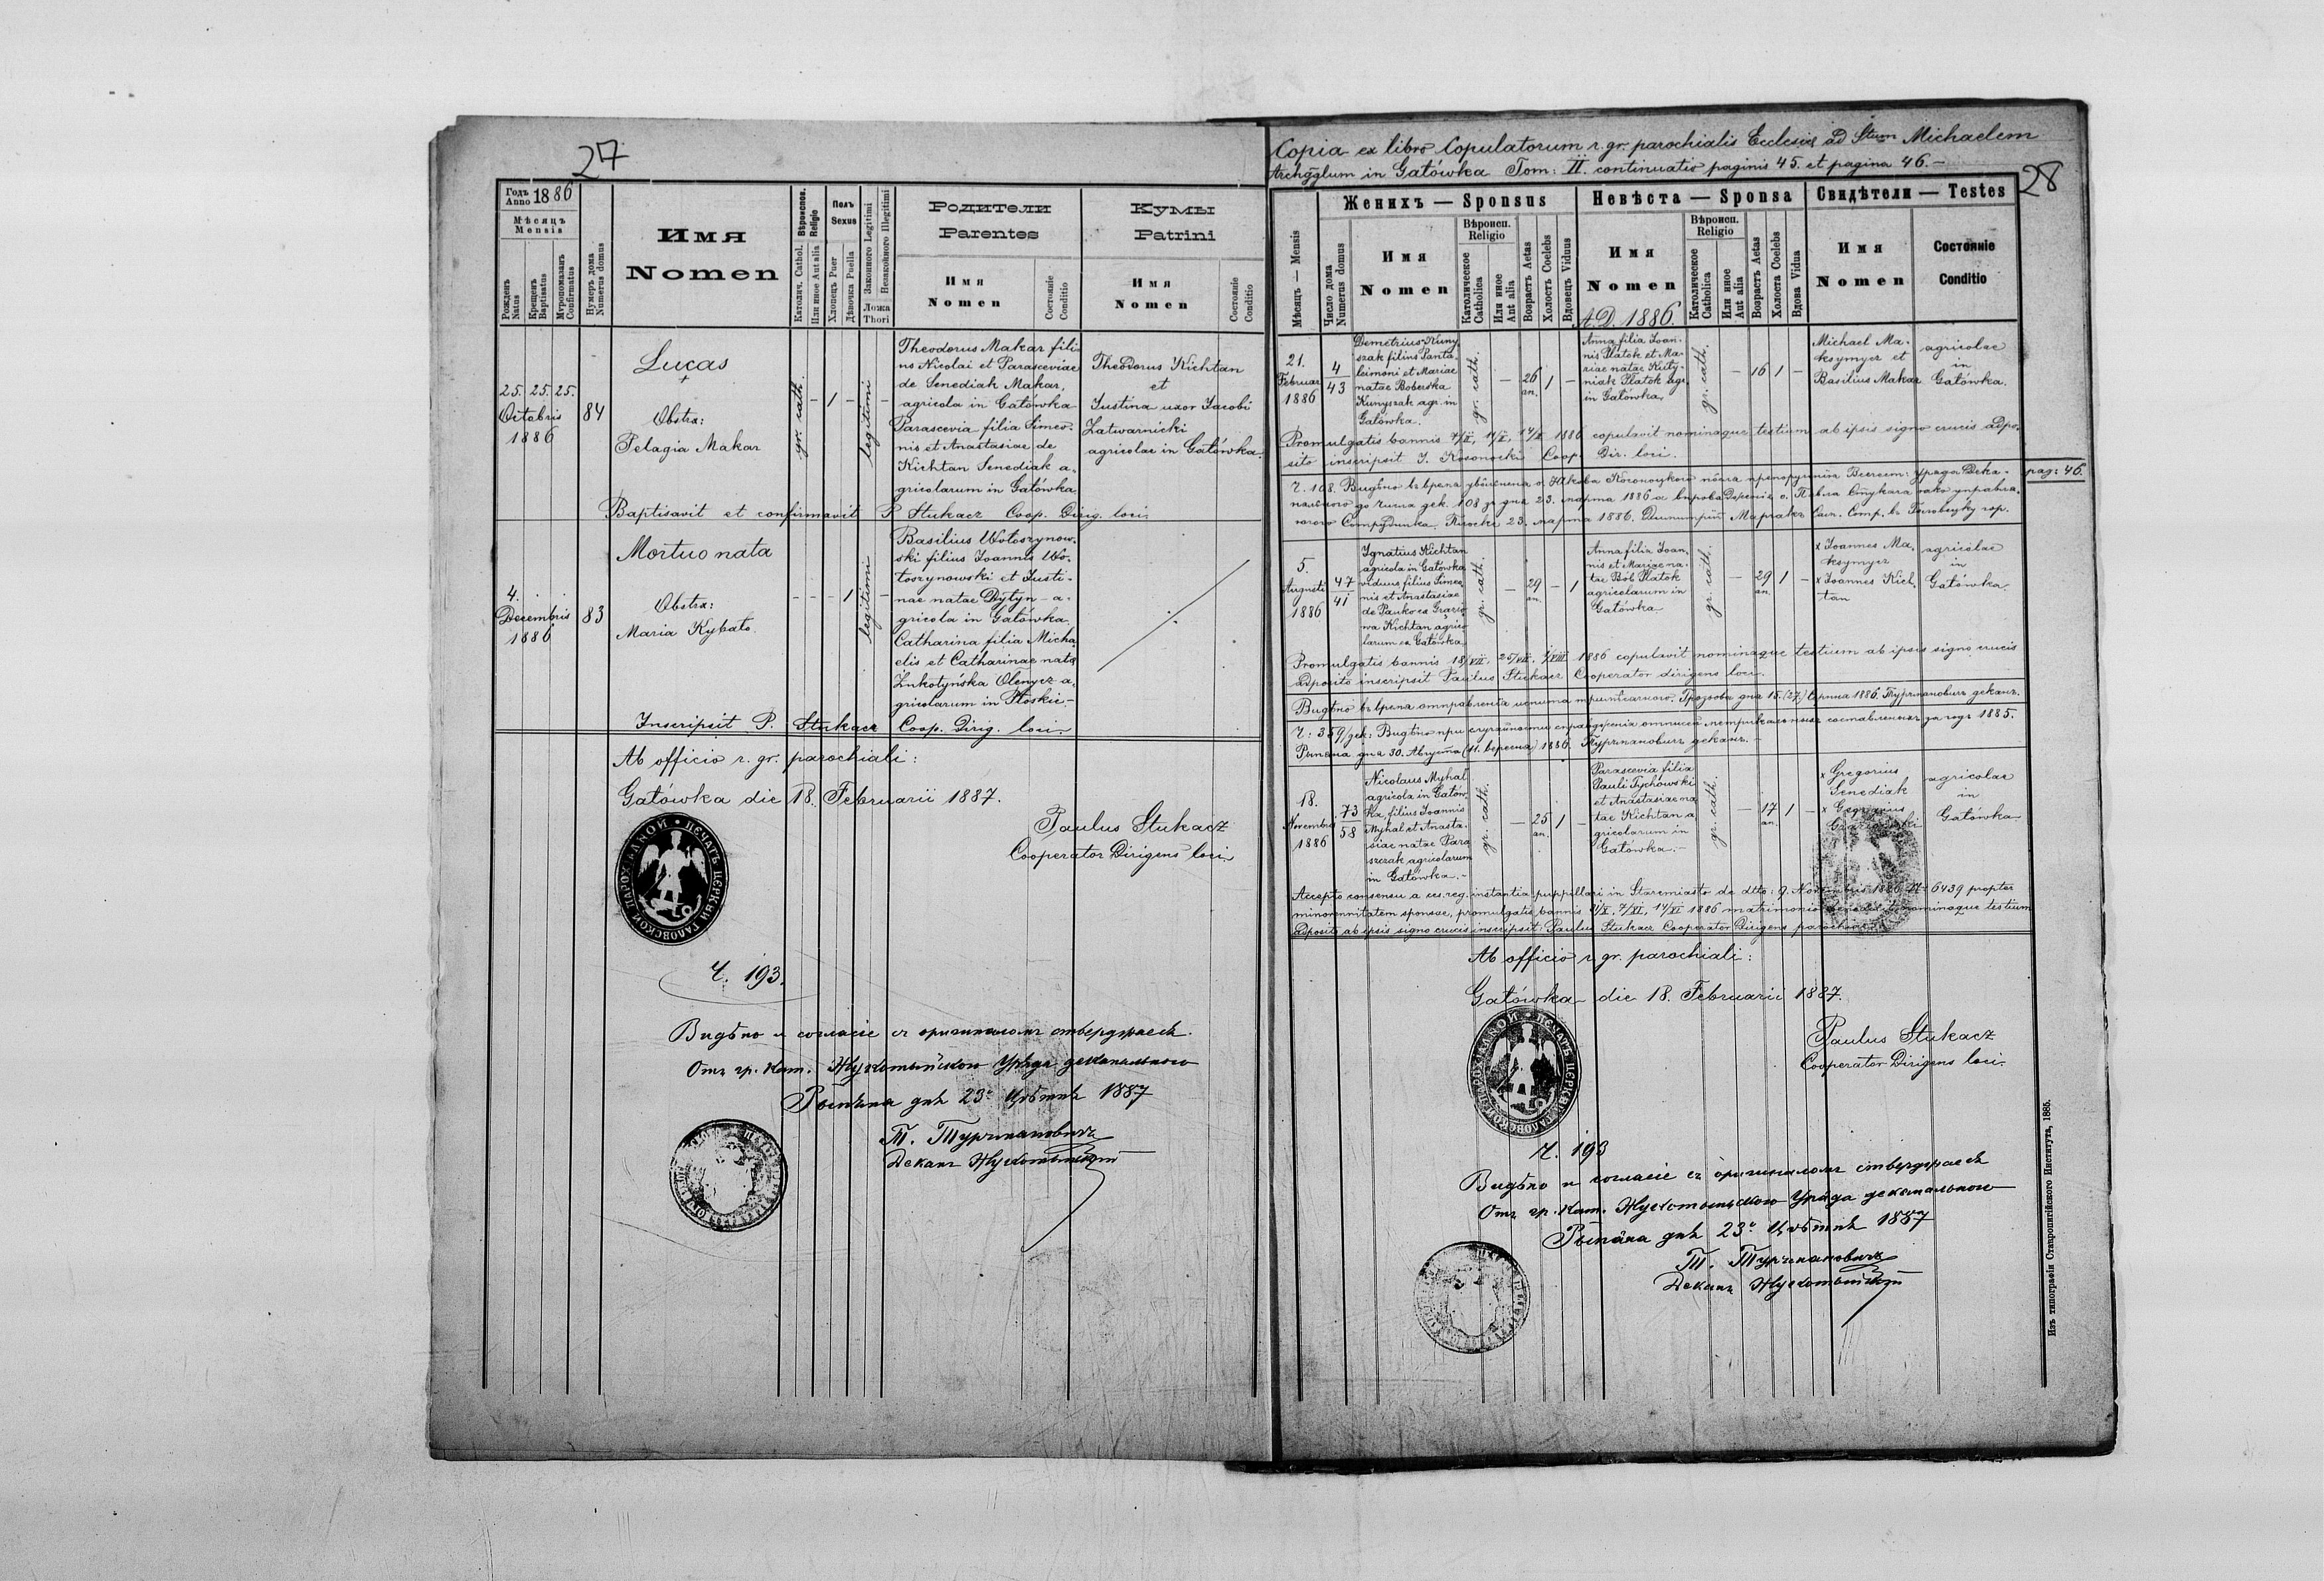 27
Годъ Anno 1886
Мѣсяцъ
Mensis
Рожденъ Natus
Крещенъ Baptisatus
Мѵропомазанъ Confirmatus
Нумеръ дома Numerus domus
Имя
Nomen
Вѣроиспов. Religio
Католич. Cathol.
Или иное Aut alia
Полъ
Sexus
Хлопецъ Puer
Дѣвочка Puella
Законного Legitimi
Незаконного Illegitimi
Ложа
Thori
Родители
Parentes
Имя
Nomen
Состояніе
Conditio
Кумы
Patrini
Имя
Nomen
Состояніе
Conditio
25. 25. 25.
Octobris
1886
84
Lucas
+
Obstx:
Pelagia Makar
gr. cath.
- 1 -
legitimi
-
Theodorus Makar fili-
us Nicolai et Parasceviae
de Senediak Makar,
agricola in Gatówka
Parascevia filia Simeo-
nis et Anastasiae de
Kichtan Senediak a-
gricolarum in Gatówka
Theodorus Kichtan
et
Justina uxor Jacobi
Zatwarnicki
agricolae in Gatówka.
Baptisavit et confirmavit P Stukacz Coop. Dirig. loci
4.
Decembris
1886
83
Mortuo nata
Obstx:
Maria Kybato
- - - 1
legitimi
-
Basilius Wotoszynow-
ski filius Joannis Wo-
toszynowski et Justi-
nae natae Dytyn - a-
gricola in Gatówka.
Catharina filia Micha-
elis et Catharinae nata
Żukotyńska Olenycz a-
gricolarum in Ptoskie -
Inscripsit P. Stukacz Coop. Dirig. loci.
Ab officio r. gr. parochiali:
Gatówka die 18. Februarii 1887.
Paulus Stukacz
Cooperator Dirigens loci
ПЕЧАТЬ ЦЕРКВИ ГАЛОВСКОЙ ПАРОХІАЛЬНОЙ
Ч. 193.
Видѣно и согласіе съ оригиналомъ ствердраесь
Отъ гр. кат. Жукотыньского Уряда деканального
Рыпяна днь 23. Цвѣтнь 1887
Т. Турчмановичъ
Деканъ Жукотыньскій
Copia ex libro Copulatorum r. gr. parochialis Ecclesiae ad Stum Michaelem
Archgglum in Gatówka Tom: II. continuatio paginis 45. et pagina 46. -
28
Мѣсяцъ — Mensis
Число дома Numerus domus
Женихъ — Sponsus
Имя
Nomen
Вѣроисп.
Religio
Католическое Catholica
Или иное Aut alia
Возрастъ Aetas
Холостъ Coelebs
Вдовецъ Vidus
Невѣста — Sponsa
Имя
Nomen
A.D. 1886.
Вѣроисп.
Religio
Католическое Catholica
Или иное Aut alia
Возрастъ Aetas
Холоста Coelebs
Вдова Vidua
Свидѣтели — Testes
Имя
Nomen
Состояніе
Conditio
21.
Februar
1886
4
43
Demetrius Kuny-
szak filius Panta-
leimoni et Mariae
natae Boberska
Kunyszak agr. in
Gatówka.
gr. cath.
-
26
an.
1
-
Anna filia Joan-
nis Ptatek et Ma-
riae natae Kuty-
niak Ptatek agr.
in Gatówka.
gr. cath.
-
16
1
-
Michael Ma-
ksymycz et
Basilius Makar
agricolae
in
Gatówka.
Promulgatis bannis 7/II, 14/II 1886 copulavit nominaque testium ab ipsis signo crucis adpo-
sito inscripsit J. Kosonocki Coop. Dir. loci.
pag: 46.
Ч. 108. Видѣно въ время
1886 а впровадженія о. Павла Стукача яко управля-
ючого Сотрудника. 23. марта 1886.
5.
Augusti
1886
47
41
Ignatius Kichtan
agricola in Gatówka
viduus, filius Simeo-
nis et Anastasiae
de Panko ex Grazio-
wa Kichtan agrico-
larum ex Gatówka
gr. cath.
-
29
an.
-
1
Anna filia Joan-
nis et Mariae na-
tae Bob Ptatek
agricolarum in
Gatówka
gr. cath.
-
29
an.
1
-
x Joannes Ma-
ksymycz
x Joannes Kich-
tan
agricolae
in
Gatówka
Promulgatis bannis 18/VII, 25/VII, 1/VIII 1886 copulavit nominaque testium ab ipsis signo crucis
adposito inscripsit Paulus Stukacz Cooperator dirigens loci.
Видѣно въ время дня 15. (27.) Серпня 1886. Турчмановичъ деканъ.
Ч: 359/дек. Видѣно при за годъ 1885.
Рыпяна дня 30. Августа (11. вересня) 1886. Турчмановичъ деканъ.
18.
Novembris
1886
73
58
Nicolaus Myhal
agricola in Gatów-
ka, filius Joannis
Myhal et Anasta-
siae natae Para-
szczak agricolarum
in Gatówka. -
gr. cath.
-
25
an.
1
-
Parascevia filia
Pauli Tychowski
et Anastasiae na-
tae Kichtan a-
gricolarum in
Gatówka. -
gr. cath.
-
17
an.
1
-
x Gregorius
Senediak
x Gregorius
agricolae
in
Gatówka
Accepto consensu a ces. reg. instantia puppillari in Staremiasto de dtto: 9. Novembris 1886 N: 6439 propter
minorennitatem sponsae, promulgatis bannis 7/XI, 14/XI 1886 matrimonio nominaque testium
adposito ab ipsis signo crucis inscripsit Paulus Stukacz Cooperator Dirigens
Ab officio r. gr. parochiali:
Gatówka die 18. Februarii 1887.
Paulus Stukacz
Cooperator Dirigens loci.
ПЕЧАТЬ ЦЕРКВИ ГАЛОВСКОЙ ПАРОХІАЛЬНОЙ
Ч. 193
Видѣно и согласіе съ оригиналомъ ствердраесь
Отъ гр. кат. Жукотыньского Уряда деканального
Рыпяна днь 23. Цвѣтнь 1887
Т. Турчмановичъ
Деканъ Жукотыньскій
Изъ типографіи Ставропигійского Института, 1885.